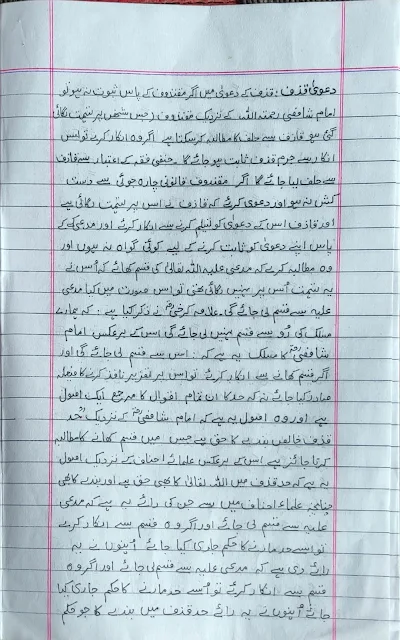 دعویٰ قذف: قذف کے دعویٰ میں اگر مقذوف کے پاس ثبوت نہ ہو تو
امام شافعی رحمتہ اللہ کے نزدیک مقذوف (جس شخص پر تہمت لگائی
گئی ہو قاذف سے حلف کا مطالبہ کر سکتا ہے اگر وہ انکار کرے تو اس
انکار سے جرم قذف ثابت ہو جائے گا حنفی فقہ کے اعتبار سے قاذف
سے حلف لیا جائے گا اگر مقذوف قانونی چارہ جوئی سے دست
کش نہ ہو اور دعویٰ کرے کہ قاذف نے اس پر تہمت لگائی ہے
اور قاذف اس کے دعویٰ کو تسلیم کرنے سے انکار کرے اور مدعی کے
پاس اپنے دعویٰ کو ثابت کرنے کے لیے کوئی گواہ نہ ہوں اور
وہ مطالبہ کرے کہ مدعی علیہ اللہ تعالیٰ کی قسم کھائے کہ اُس نے
یہ تہمت اُس پر نہیں لگائی تھی تو اس صورت میں کیا مدعی
علیہ سے قسم لی جائے گی۔ علامہ کرخیؒ نے ذکر کیا ہے: کہ ہمارے
مسلک کی رُو سے قسم نہیں لی جائے گی اس کے برعکس امام
شافعیؒ کا مسلک یہ ہے کہ: اس سے قسم لی جائے گی اور
اگر قسم کھانے سے انکار کرے تو اس پر تعزیر نافذ کرنے کا فیصلہ
صادر کیا جائے نہ کہ حد کا ان تمام اقوال کا مرجع ایک اصول
ہے اور وہ اصول یہ ہے کہ امام شافعیؒ کے نزدیک حد
قذف خالص بندے کا حق ہے جس میں قسم کھانے کا مطالبہ
کرنا جائز ہے اس کے برعکس علمائے احناف کے نزدیک اصول
یہ ہے کہ حد قذف میں اللہ تعالیٰ کا بھی حق ہے اور بندے کا بھی
چنانچہ علماء احناف میں سے جن کی رائے یہ ہے کہ مدعی
علیہ سے قسم لی جائے اور اگر وہ قسم سے انکار کرے
تو اسے حد مارنے کا حکم جاری کیا جائے اُنہوں نے یہ
رائے دی ہے کہ مدعی علیہ سے قسم لی جائے اور اگر وہ
قسم سے انکار کرے تو اُسے حد مارنے کا حکم جاری کیا
جائے اُنہوں نے یہ رائے حد قذف میں بندے کا جو حکم